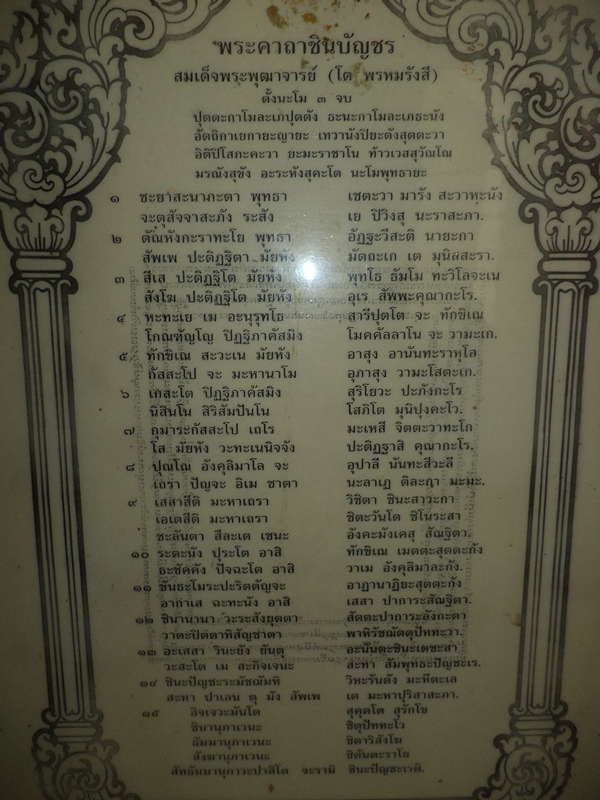 พระคาถาชินบัญชร
สมเด็จพระพุฒาจารย์ (โต พรหมรังสี)
ตั้งนะโม ๓ จบ
ปุตตะกาโมละเภปุตตัง ธะนะกาโมละเภธะนัง
อัตถิกาเยกายะญายะ เทวานังปิยะตังสุตตะวา
อิติปิโสภะคะวา ยะมะราชาโน ท้าวเวสสุวัณโณ
มรณังสุขัง อะระหังสุคะโต นะโมพุทธายะ
๑ ชะยาสะนาภะตา พุทธา เชตะวา มารัง สะวาหะนัง
จะตุสัจจาสะภัง ระสัง เย ปิวิงสุ นะราสะภา.
๒ ตัณหังกะราทะโย พุทธา อัฏฐะวีสะติ นายะกา
สัพเพ ปะติฏฐิตา มัยหัง มัตถะเก เต มุนิสสะรา.
๓ สีเส ปะติฏฐิโต มัยหัง พุทโธ ธัมโม ทะวิโลจะเน
สังโฆ ปะติฏฐิโต มัยหัง อุเร สัพพะคุณากะโร.
๔ หะทะเย เม อะนุรุทโธ สารีปุตโต จะ ทักขิเณ
โกณฑัญโญ ปิฏฐิภาคัสมิง โมคคัลลาโน จะ วามะเก.
๕ ทักขิเณ สะวะเน มัยหัง อาสุง อานันทะราหุโล
กัสสะโป จะ มะหานาโม อุภาสุง วามะโสตะเก.
๖ เกสะโต ปิฏฐิภาคัสมิง สุริโยวะ ปะภังกะโร
นิสินโน สิริสัมปันโน โสภิโต มุนิปุงคะโว.
๗ กุมาระกัสสะโป เถโร มะเหสี จิตตะวาทะโก
โส มัยหัง วะทะเนนิจจัง ปะติฏฐาสิ คุณากะโร.
๘ ปุณโณ อังคุลิมาโล จะ อุปาลี นันทะสีวะลี
เถรา ปัญจะ อิเม ชาตา นะลาเฏ ติละกา มะมะ.
๙ เสสาสีติ มะหาเถรา วิชิตา ชินะสาวะกา
เอเตสีติ มะหาเถรา ชิตะวันโต ชิโนระสา
ชะลันตา สีละเต เชนะ อังคะมังเคสุ สัณฐิตา.
๑๐ ระตะนัง ปุระโต อาสิ ทักขิเณ เมตตะสุตตะกัง
ธะชัคคัง ปัจฉะโต อาสิ วาเม อังคุลิมาละกัง.
๑๑ ขันธะโมระปะริตตัญจะ อาฏานาฏิยะสุตตะกัง
อากาเส ฉะทะนัง อาสิ เสสา ปาการะสัณฐิตา.
๑๒ ชินานานา วะระสังยุตตา สัตตะปาการะลังกะตา
วาตะปิตตาทิสัญชาตา พาหิรัชฌัตตุปัททะวา.
๑๓ อะเสสา วินะยัง ยันตุ อะนันตะชินะเตชะสา
วะสะโต เม สะกิจเจนะ สะทา สัมพุทธะปัญชะเร.
๑๔ ชินะปัญชะระมัชฌัมหิ วิหะรันตัง มะหีตะเล
สะทา ปาเลน ตุ มัง สัพเพ เต มะหาปุริสาสะภา.
๑๕ อิจเจวะมันโต สุคุตโต สุรักโข
ชินานุภาเวนะ ชิตุปัททะโว
ธัมมานุภาเวนะ ชิตาริสังโฆ
สังฆานุภาเวนะ ชิตันตะราโย
สัทธัมมานุภาวะปาลิโต จะรามิ ชินะปัญชะเรติ.